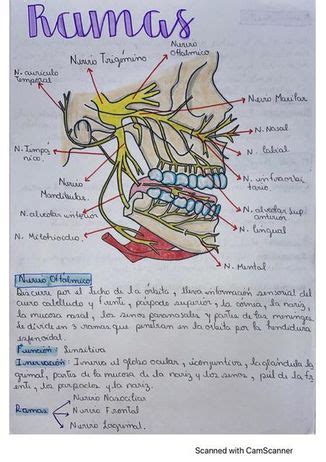 Ramas
Nervio Trigémino
Nervio
Oftalmico
N. auriculo
temporal
Nervio Maxilar
N. Nasal
N. Timpá
nico.
N. Labial
N. infraorbi
tario.
Nervio
Mandibular.
N. alveolar sup
anterior
N. alveolar inferior
N. lingual
N. Milohioideo
N. Mental
Nervio Oftalmico:
Discurre por el techo de la órbita, lleva información sensorial del
cuero cabelludo y frente, párpado superior, la córnea, la nariz,
la mucosa nasal, los senos paranasales y partes de las meninges.
Se divide en 3 ramas que penetran en la orbita por la hendidura
esfenoidal.
Función: Sensitiva
Inervación: Inerva el globo ocular, conjuntiva, la glandula la
grimal, partes de la mucosa de la nariz y los senos, piel de la fr
ente, los parpados y la nariz.
Nervio Nasociliar
Ramas Nervio Frontal
Nervio Lagrimal.
Scanned with CamScanner